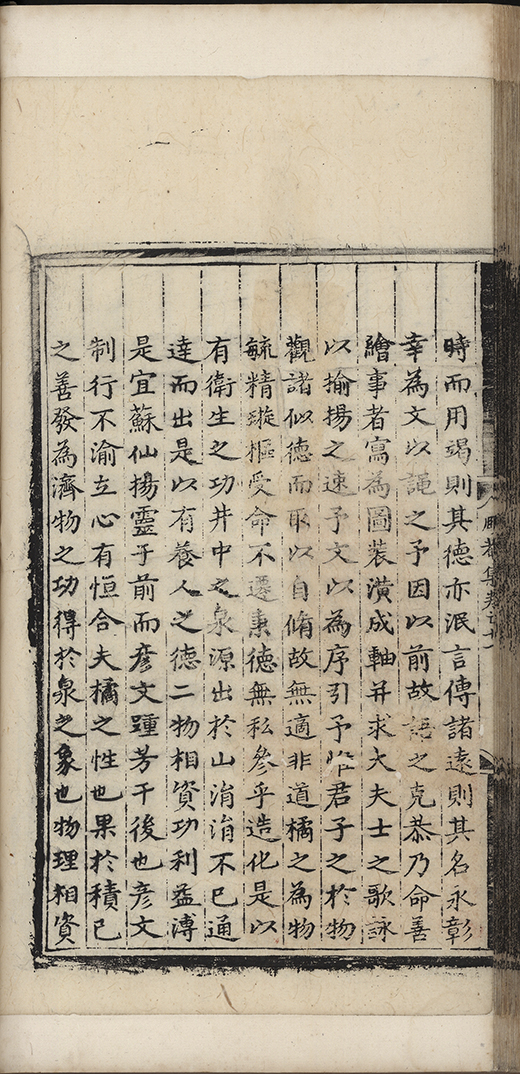 時而用竭則其德亦泯言傳諸遠則其名永彰
幸為文以謹之予因以前故語之克恭乃命善
繪事者寫為圖裝潢成軸并求大夫士之歌詠
以揄揚之速予文以為序引予惟君子之於物
觀諸似德而取以自脩故無適非道橘之為物
毓精璇樞受命不遷秉德無私參乎造化是以
有衛生之功井中之泉源出於山涓涓不已通
達而出是以有養人之德二物相資功利益溥
是宜蘇仙揚靈于前而彥文踵芳于後也彥文
制行不渝立心有恒合夫橘之性也果於積已
之善發為濟物之功得於泉之象也物理相資